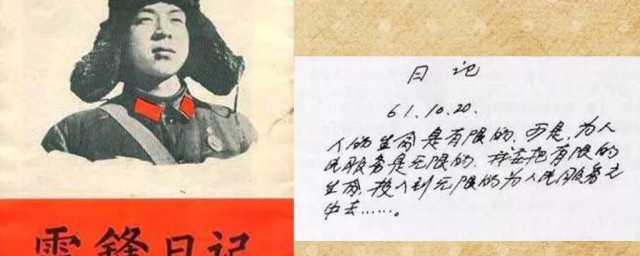 雷鋒日记
日记
61.10.20.
人的生命是有限的,可是,为人
民服务是无限的,我要把有限的
生命,投入到无限的为人民服务之
中去……。